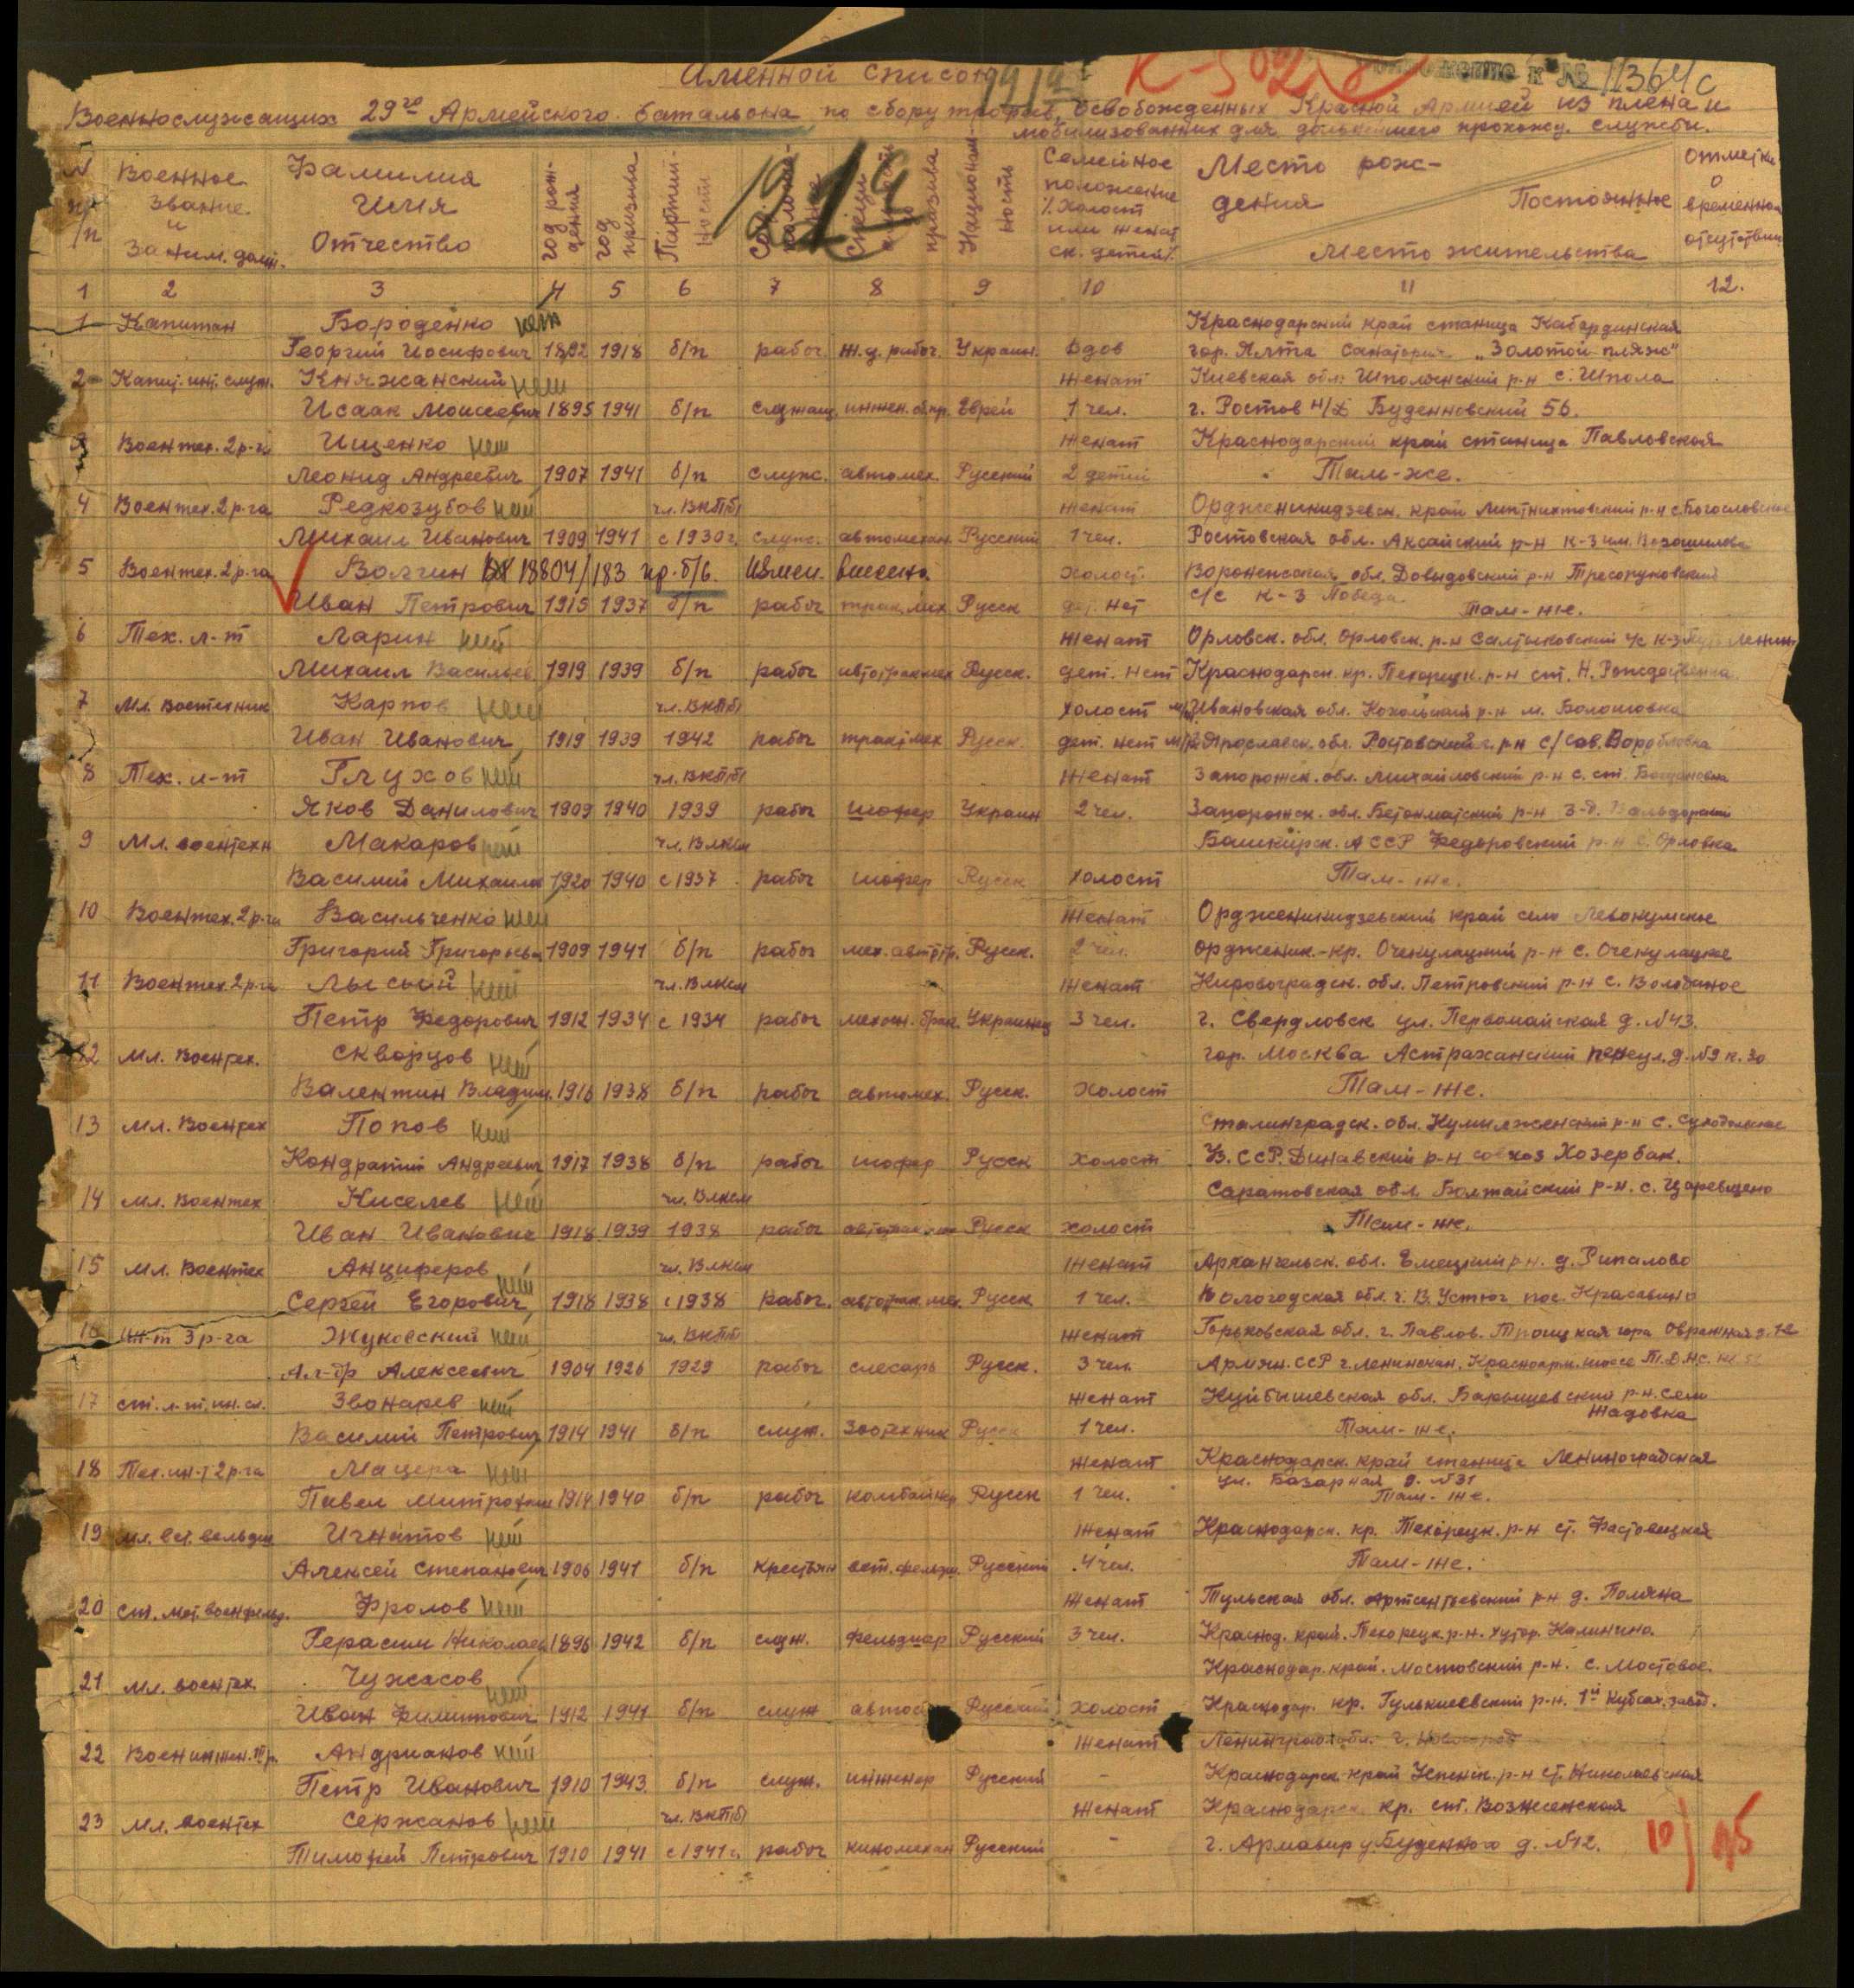 Именной список
К-502
Приложение к № 11364с
Военнослужащих 29го Армейского батальона по сбору трофеев, освобожденных Красной Армией из плена и
мобилизованных для дальнейшего прохожд. службы.
N п/п Военное звание и заним. долж. Фамилия Имя Отчество год рождения год призыва Партийность Национальность Семейное положение /холост или женат ск. детей/ Место рождения Постоянное место жительства Отметки о временном отсутствии
1 2 3 4 5 6 7 8 9 10 11 12.
1 Капитан Бороденко нет Краснодарский край станица Кабардинская
Георгий Иосифович 1892 1918 б/п рабоч. ж.д. рабоч. Украин. вдов гор. Ялта санатория "Золотой пляж"
2 Капит. инж. служ. Княжанский нет женат Киевская обл. Шполянский р-н с. Шпола
Исаак Моисеевич 1895 1941 б/п служащ. инжен. Еврей 1 чел. г. Ростов н/Д Буденновский 56.
3 Воентех. 2 р-га Ищенко нет женат Краснодарский край станица Павловская
Леонид Андреевич 1907 1941 б/п служ. автомех. Русский 2 детей Там-же.
4 Воентех. 2 р-га Редкозубов нет чл. ВКП(б) женат Орджоникидзевск. край р-н с. Богословское
Михаил Иванович 1909 1941 с 1930 г. служ. автомехан. Русский 1 чел. Ростовская обл. Аксайский р-н к-з им. Ворошилова
5 Воентех. 2 р-га Волгин 18804/183 пр. б/в. измен. внесено. холост. Воронежская обл. Давыдовский р-н Тресоруковский
Иван Петрович 1915 1937 б/п рабоч трак. мех Русск дет. нет с/с к-з Победа. Там-же.
6 Тех. л-т Ларин нет женат Орловск. обл. Орловск. р-н Салтыковский с/с к-з Ленина
Михаил Васильев. 1919 1939 б/п рабоч автотракмех Русск. дет. нет Краснодарск. кр. Тихорецк. р-н ст. Н. Рождественка.
7 Мл. воентехник Карпов нет чл. ВКП(б) холост м/р Ивановская обл. р-н
Иван Иванович 1919 1939 1942 рабоч трактмех Русск. дет. нет м/ж Ярославск. обл. Ростовский р-н с/сов.
8 Тех. л-т Глухов нет чл. ВКП(б) женат Запорожск. обл. Михайловский р-н с. ст. Богдановка
Яков Данилович 1909 1940 1939 рабоч шофер Украин 2 чел. Запорожск. обл. р-н
9 Мл. воентехн Макаров нет чл. Влксм Башкирск. АССР Федоровский р-н с. Орловка
Василий Михайлов 1920 1940 с 1937 рабоч шофер Русск холост Там-же.
10 Воентех. 2 р-га Васильченко нет женат Орджоникидзевский край село Левокумское
Григорий Григорьевич 1909 1941 б/п рабоч мех. автотр. Русск. 2 чел. орджоник-кр. Очекулацкий р-н с. Очекулацкое
11 Воентех. 2 р-га Лысый нет чл. Влксм женат Кировоградск. обл. Петровский р-н с. Володиное
Петр Федорович 1912 1934 с 1934 рабоч механ. Украинец 3 чел. г. Свердловск ул. Первомайская д. N 43.
12 Мл. Воентех. Скворцов нет гор. Москва Астраханский переул. д. N 9 к. 30
Валентин Владим. 1916 1938 б/п рабоч автомех. Русск. холост Там-же.
13 Мл. Воентех Попов нет Сталинградск. обл. Кумылженский р-н с.
Кондратий Андреевич 1917 1938 б/п рабоч шофер Русск холост Уз. ССР. Динавский р-н совхоз Хозербак.
14 Мл. Воентех Киселев нет чл. Влксм Саратовская обл. Болтайский р-н. с. Царевщено
Иван Иванович 1918 1939 1938 рабоч Русск холост Там-же.
15 Мл. Воентех Анциферов нет чл. Влксм женат Архангельск. обл. Емецкий р-н. д. Рипалово
Сергей Егорович 1918 1938 с 1938 рабоч. автотрак. мех. Русск 1 чел. Вологодская обл. г. В. Устюг пос. Красавино
16 3 р-га Жуковский нет чл. ВКП(б) женат Горьковская обл. г. Павлов. Троицкая гора Овражная
Ал-др Алексеевич 1904 1926 1929 рабоч слесарь Русск. 3 чел. Армян. ССР г. Ленинакан. Красноарм. шоссе
17 ст. л-т. ин. сл. Звонарев нет женат Куйбышевская обл. Барышевский р-н. село Жадовка
Василий Петрович 1914 1941 б/п служ. Зоотехник Русск 1 чел. Там-же.
18 Тех. ин-т 2 р-га Мацера нет женат Краснодарск. край станица Ленинградская
ул. Базарная д. N 31
Павел Митрофан 1914 1940 б/п рабоч комбайнер Русск 1 чел. Там-же.
19 мл. вет. фельдш Игнатов нет женат Краснодарск. кр. Тихорецк. р-н ст. Фастовецкая
Алексей Степанович 1906 1941 б/п крестьян вет. фельдш. Русский 4 чел. Там-же.
20 ст. мед. воен фельд. Фролов нет женат Тульская обл. р-н д. Поляна
Герасим Николаев 1896 1942 б/п служ. фельдшер Русский 3 чел. Краснод. край. Тихорецк. р-н. хутор. Калинино.
21 Мл. воентех. Чужасов нет Краснодар. край. Мостовский р-н. с. Мостовое.
Иван Филиппович 1912 1941 б/п служ Русский холост Краснодар. кр. Гулькевский р-н. 1й завод.
22 Воен инжен. III р. Андрианов нет женат Ленинград. обл. г. Новгород
Петр Иванович 1910 1943. б/п служ. инженер Русский - Краснодарск. край Успенск. р-н ст. Николаевская
23 Мл. воентех Сержанов нет чл. ВКП(б) женат Краснодарск. кр. ст. Вознесенская
Тимофей Петрович 1910 1941 с 1941 г. рабоч киномехан Русский - г. Армавир у. Буденного д. N 12.